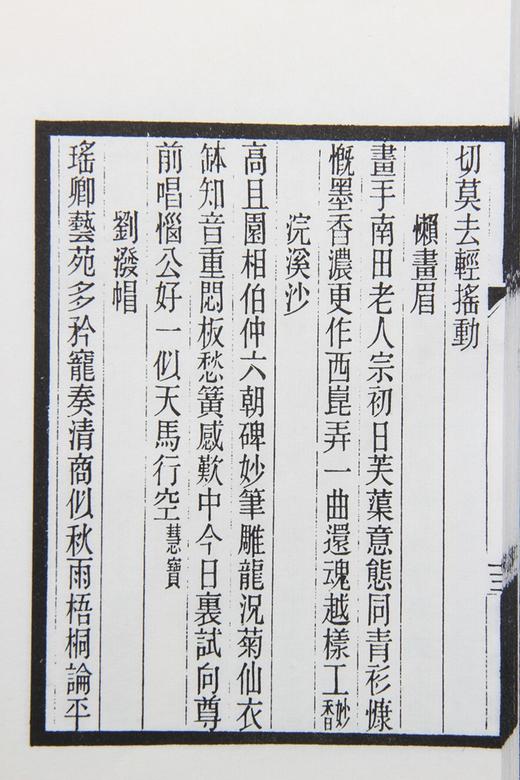 切莫去輕搖動
懶畫眉
畫手南田老人宗初日芙蕖意態同青衫慷
慨墨香濃更作西崑弄一曲還魂越樣工妙香
浣溪沙
高且園相伯仲六朝碑妙筆雕龍況菊仙衣
缽知音重悶板愁簧感歎中今日裏試向尊
前唱惱公好一似天馬行空慧寶
劉潑帽
瑤卿藝苑多矜寵奏清商似秋雨梧桐論平
三